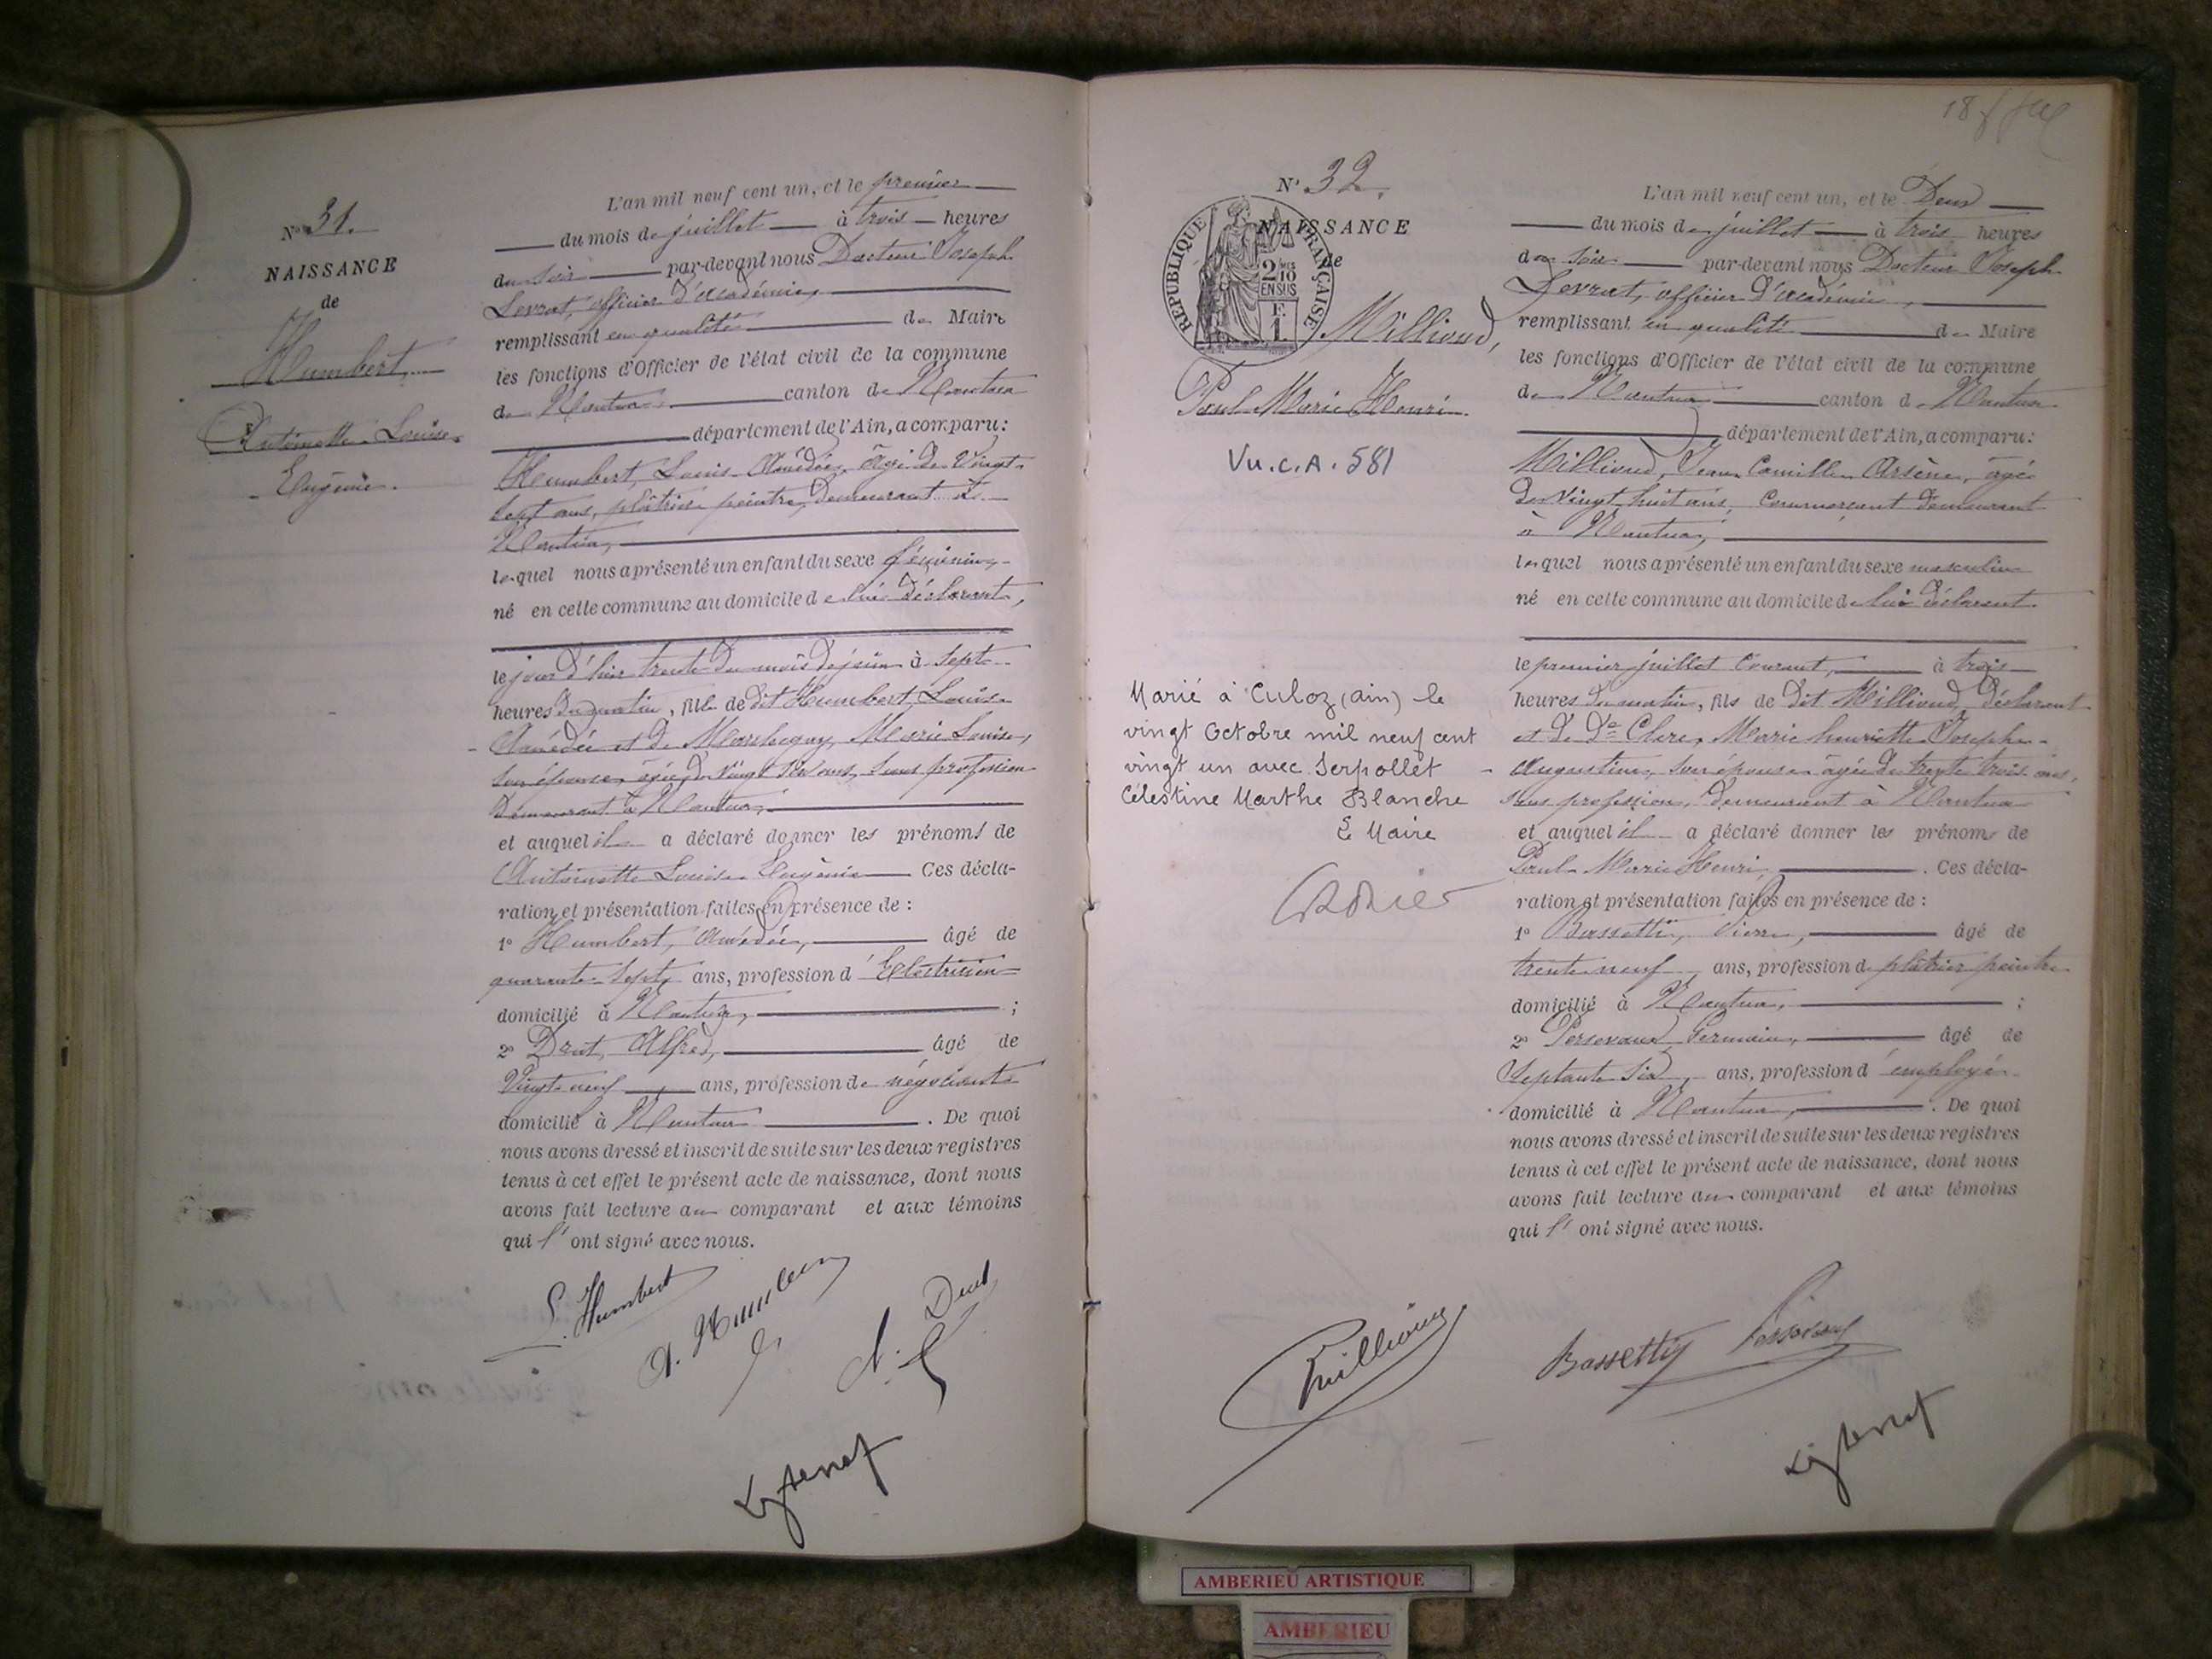 N° 31.
NAISSANCE
de
Humbert,
Antoinette Louise
Eugénie.
L'an mil neuf cent un, et le premier
du mois de juillet à trois heures
du soir par-devant nous Docteur Joseph
Levrat, officier d'académie,
remplissant en qualité de Maire
les fonctions d'Officier de l'état civil de la commune
de Nantua canton de Nantua
département de l'Ain, a comparu:
Humbert, Louis Amédée, âgé de Vingt
sept ans, plâtrier peintre, demeurant à
Nantua,
lequel nous a présenté un enfant du sexe féminin,
né en cette commune au domicile de lui déclarant,
le jour d'hier trente du mois de juin à sept
heures du matin, fille de dit Humbert, Louis
Amédée et de Marie Louise,
son épouse, âgée de Vingt ans, sans profession
demeurant à Nantua,
et auquel il a déclaré donner les prénoms de
Antoinette Louise Eugénie Ces décla-
ration et présentation faites en présence de :
1° Humbert, Amédée, âgé de
quarante sept ans, profession d'Electricien
domicilié à Nantua, ;
2° Drut, Alfred, âgé de
Vingt neuf ans, profession de négociant
domicilié à Nantua . De quoi
nous avons dressé et inscrit de suite sur les deux registres
tenus à cet effet le présent acte de naissance, dont nous
avons fait lecture au comparant et aux témoins
qui l' ont signé avec nous.
L. Humbert
A. Humbert
A. Drut
18
N° 32.
NAISSANCE
de
REPUBLIQUE FRANÇAISE
2/10 EN SUS
F. 1
Millioud,
Paul Marie Henri.
Vu. C.A. 581
Marié à Culoz (ain) le
vingt Octobre mil neuf cent
vingt un avec Serpollet
Célestine Marthe Blanche
Le Maire
L'an mil neuf cent un, et le Deux
du mois de juillet à trois heures
du soir par-devant nous Docteur Joseph
Levrat, officier d'académie,
remplissant en qualité de Maire
les fonctions d'Officier de l'état civil de la commune
de Nantua canton de Nantua
département de l'Ain, a comparu:
Millioud, Jean Camille Arsène, âgé
de Vingt huit ans, Commerçant demeurant
à Nantua,
lequel nous a présenté un enfant du sexe masculin
né en cette commune au domicile de lui déclarant
le premier juillet courant, à trois
heures du matin, fils de dit Millioud, déclarant
et de De Clerc, Marie henriette Josephe
Augustine, son épouse âgée de trente trois ans,
sans profession, demeurant à Nantua
et auquel il a déclaré donner les prénoms de
Paul Marie Henri, . Ces décla-
ration et présentation faites en présence de :
1° Bassetti, Pierre, âgé de
trente neuf ans, profession de plâtrier peintre
domicilié à Nantua, ;
2° Germain, âgé de
Septante six, ans, profession d'employé
domicilié à Nantua, . De quoi
nous avons dressé et inscrit de suite sur les deux registres
tenus à cet effet le présent acte de naissance, dont nous
avons fait lecture au comparant et aux témoins
qui l' ont signé avec nous.
Millioud
Bassetti
AMBERIEU ARTISTIQUE
AMBERIEU